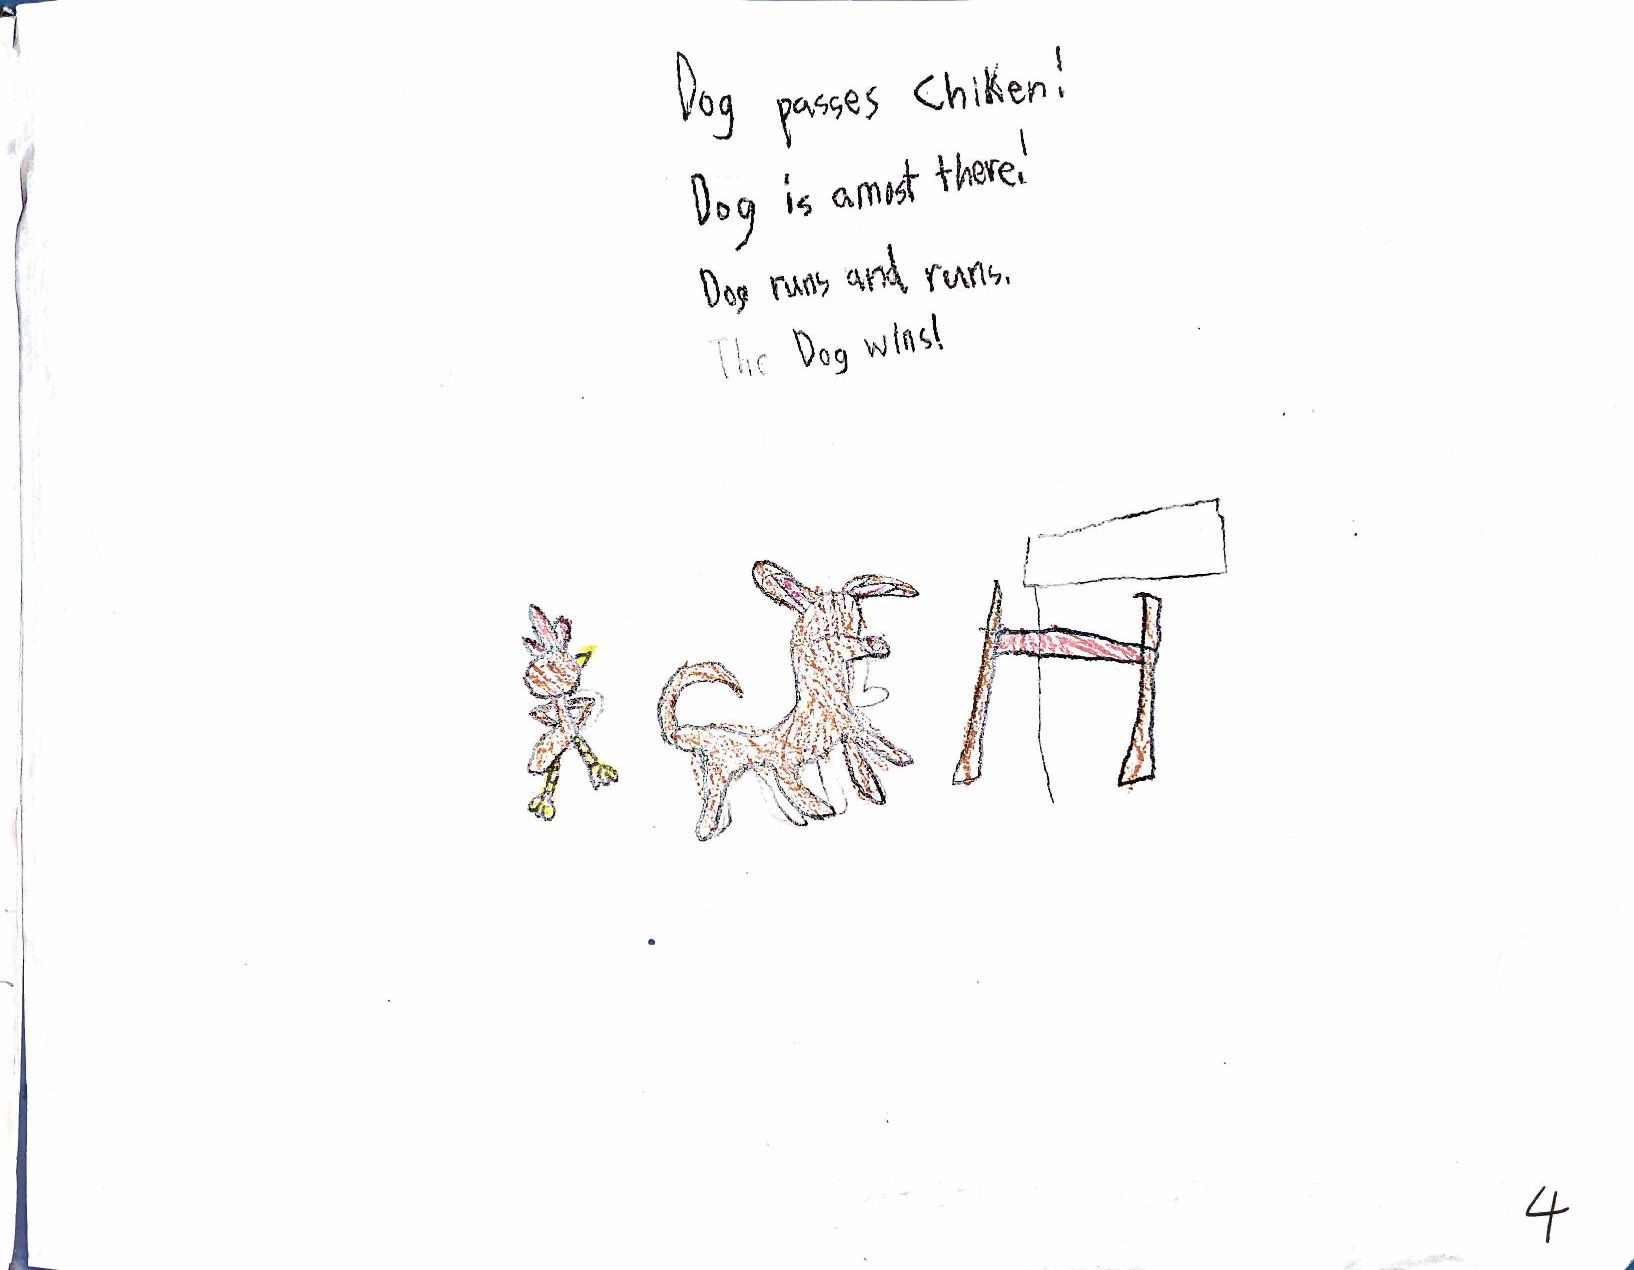 Dog passes Chiken!
Dog is amost there!
Dog runs and runs.
The Dog wins!
4